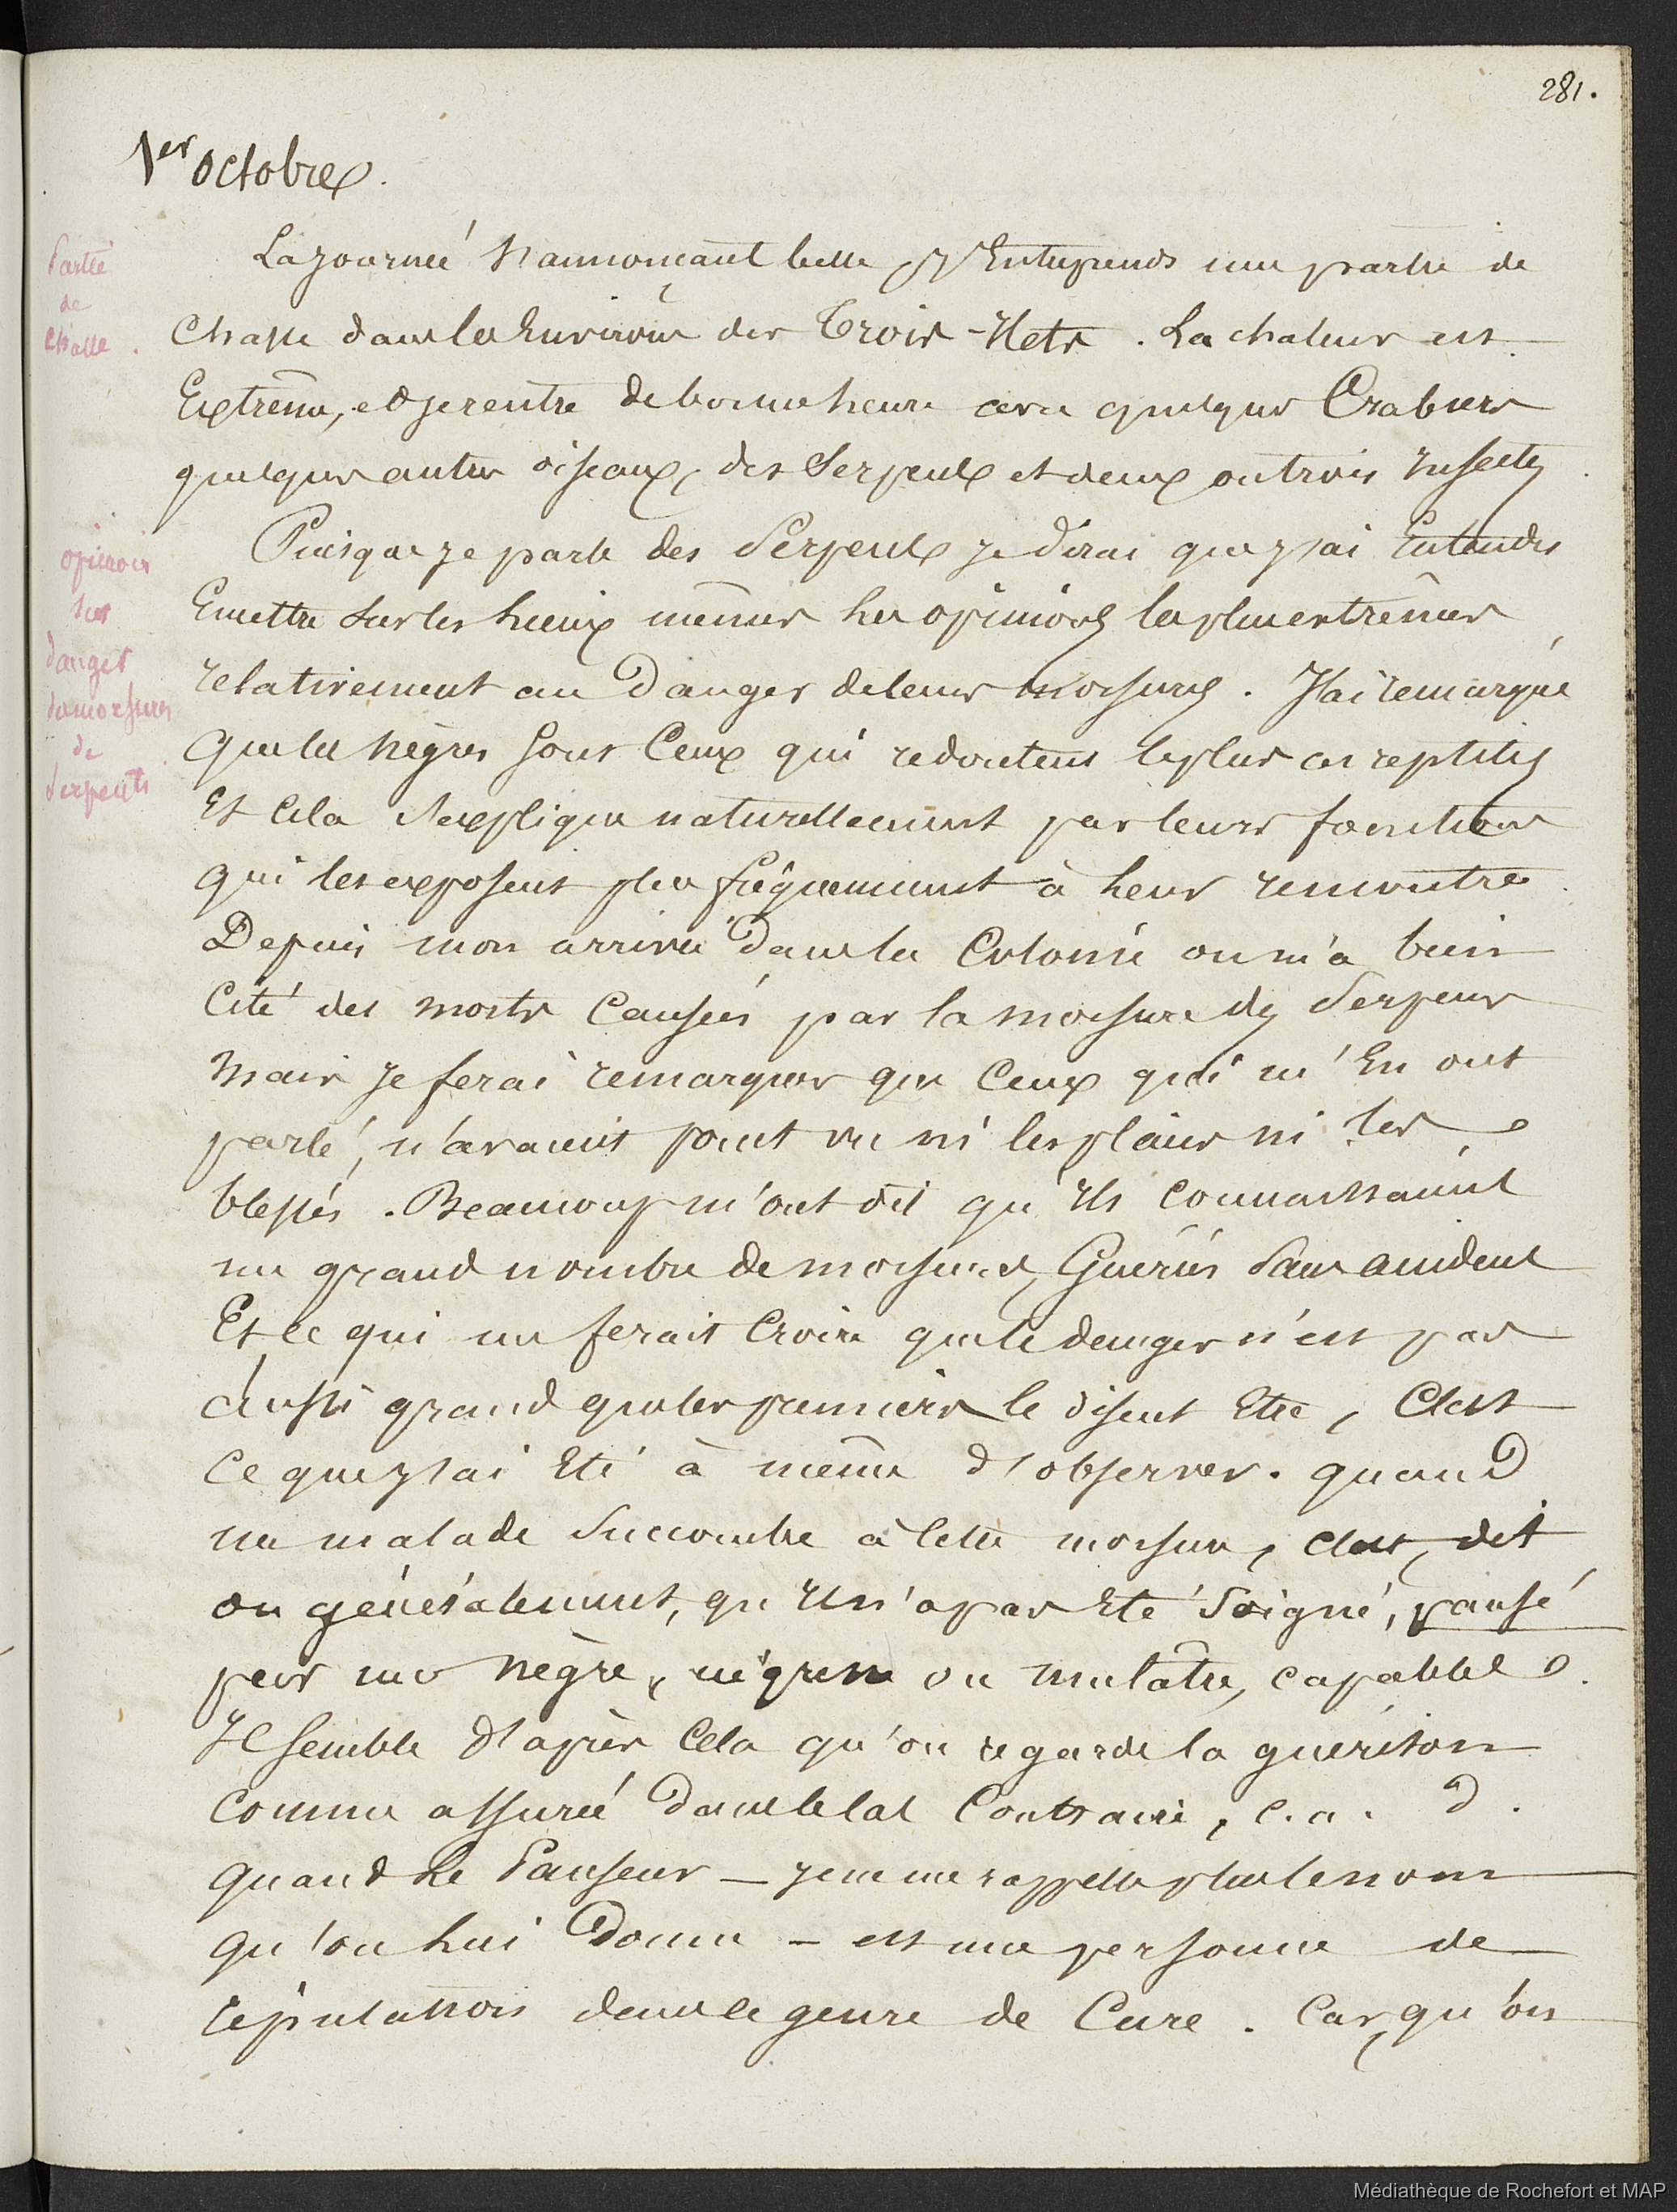 281.
1er octobre.
Partie
de
chasse.
La journée s'annonçant belle j'Entreprends une partie de
Chasse dans les Environs des Trois-Ilets. La chaleur est
Extrême, et je rentre de bonne heure avec quelques Crabiers
quelques autres oiseaux, des Serpents et deux ou trois Insectes.
opinion
sur
danger
de morsures
de
Serpents
Puisque je parle des Serpents je dirai que j'ai Entendu
Emettre sur les lieux mêmes les opinions les plus extrêmes,
relativement au Danger de leurs morsures. J'ai remarqué
que les nègres sont Ceux qui redoutent le plus ces reptiles
Et Cela s'explique naturellement par leurs fonctions
qui les exposent plus fréquemment à leur rencontre.
Depuis mon arrivée dans la Colonie on m'a bien
Cité des morts Causées par la morsure des Serpens
mais je ferai remarquer que Ceux qui m'En ont
parlé, n'avaient point vu ni les plaies ni les
blessés. Beaucoup m'ont dit qu'Ils connaissaient
un grand nombre de morsures, Guéries Sans accident
Et ce qui me ferait Croire que le danger n'est pas
aussi grand que les premiers le disent Etre, C'est
Ce que j'ai Eté à même d'observer. quand
un malade Succombe à Cette morsure, c'est, dit
on généralement, qu'Il n'a pas Eté Soigné, pansé
par un nègre, négresse ou mulâtre, capable.
Il semble d'après Cela qu'on regarde la guérison
Comme assurée dans le Cas Contraire, c.a.d.
quand Le Panseur — je ne me rappelle plus le nom
qu'on lui Donne — est une personne de
réputation dans le genre de Cure. Car, qu'on
Médiathèque de Rochefort et MAP